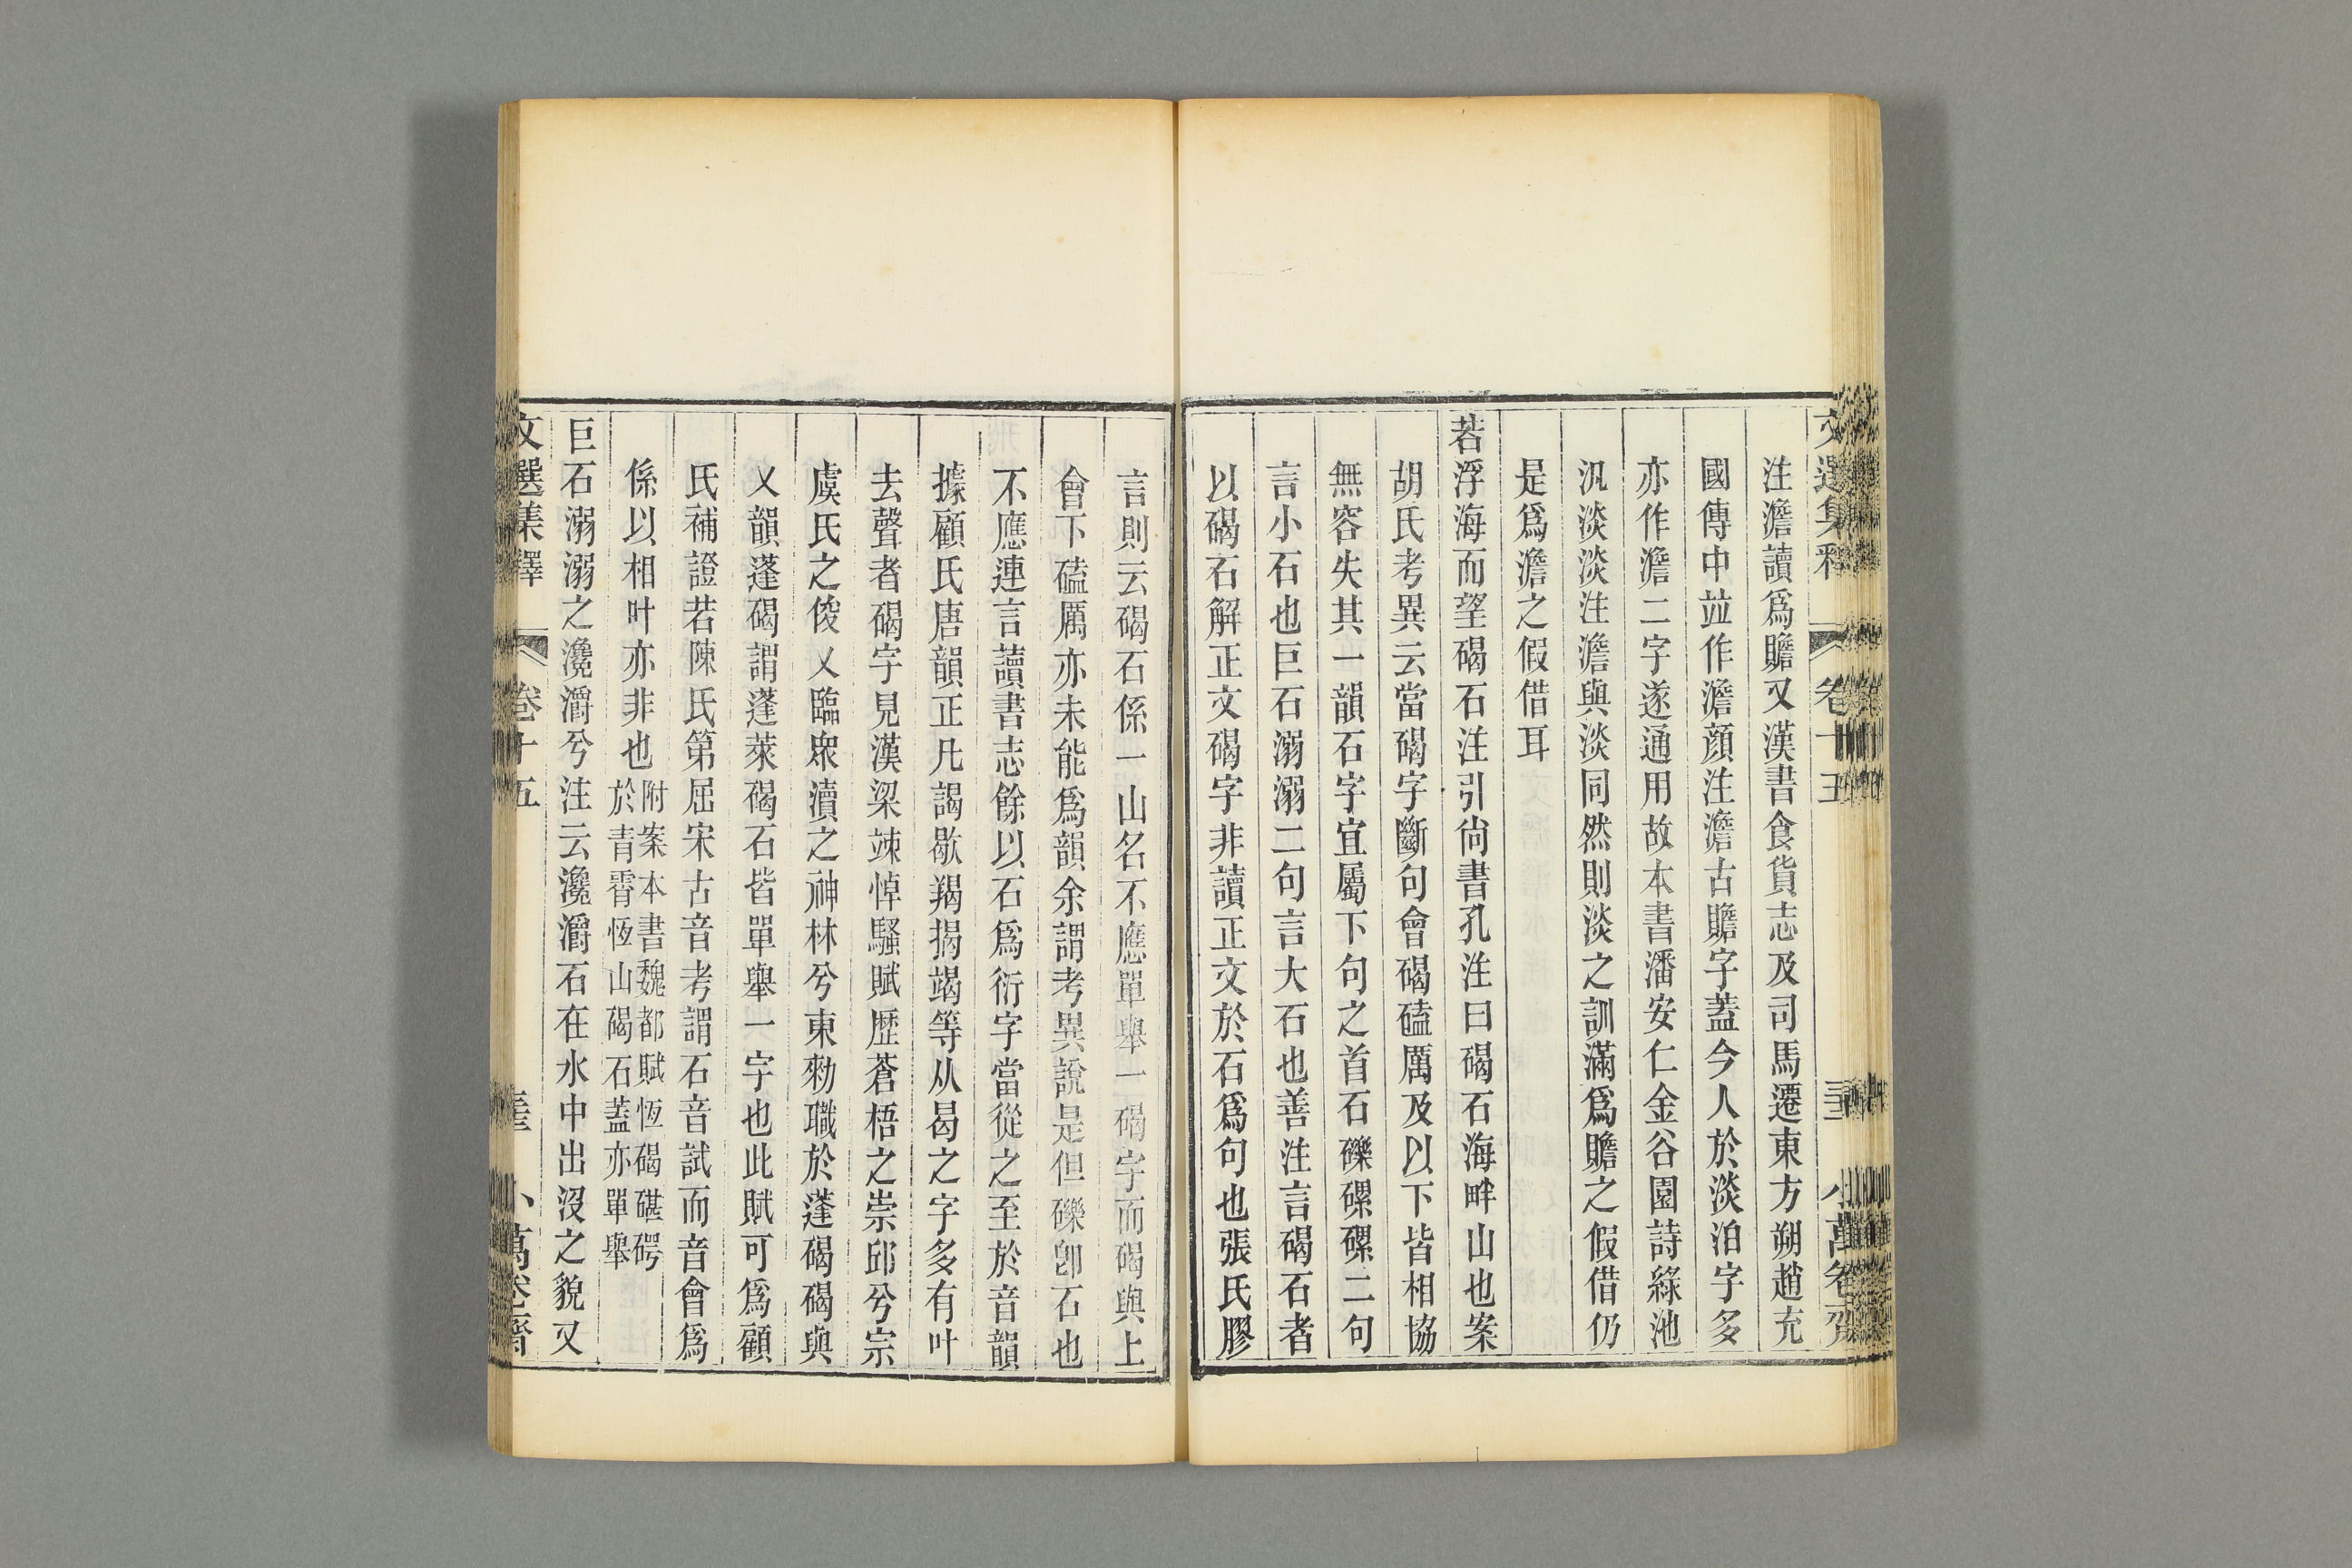 注澹讀爲贍又漢書食貨志及司馬遷東方朔趙充
國傳中竝作澹顏注澹古贍字蓋今人於淡泊字多
亦作澹二字遂通用故本書潘安仁金谷園詩綠池
汎淡淡注澹與淡同然則淡之訓滿爲贍之假借仍
是爲澹之假借耳
若浮海而望碣石注引尙書孔注曰碣石海畔山也案
胡氏考異云當碣字斷句會碣磕厲及以下皆相協
無容失其一韻石字宜屬下句之首石礫磥磥二句
言小石也巨石溺溺二句言大石也善注言碣石者
以碣石解正文碣字非讀正文於石爲句也張氏膠
言則云碣石係一山名不應單舉一碣字而碣與上
會下磕厲亦未能爲韻余謂考異說是但礫卽石也
不應連言讀書志餘以石爲衍字當從之至於音韻
據顧氏唐韻正凡謁歇羯揭竭等从曷之字多有叶
去聲者碣字見漢梁竦悼騷賦歷蒼梧之崇邱兮宗
虞氏之俊乂臨衆瀆之神林兮東勑職於蓬碣碣與
乂韻蓬碣謂蓬萊碣石皆單舉一字也此賦可爲顧
氏補證若陳氏第屈宋古音考謂石音試而音會爲
係以相叶亦非也
附案本書魏都賦恆碣碪碍
於青霄恆山碣石蓋亦單舉
巨石溺溺之瀺灂兮注云瀺灂石在水中出沒之貌又
文選集釋 卷十五